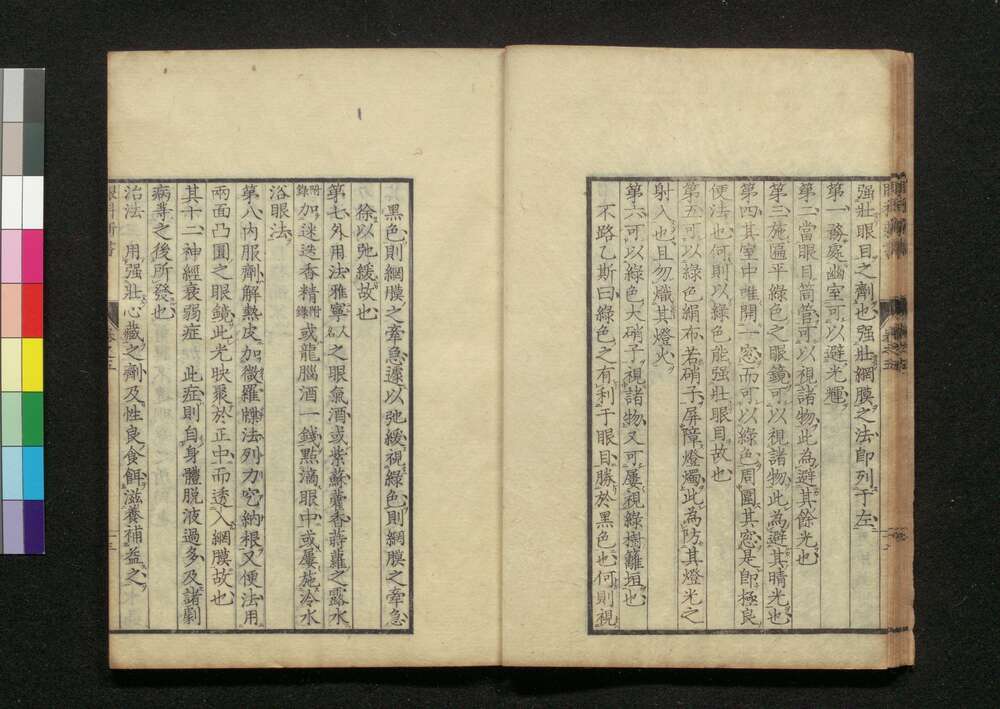 强壯眼目之劑也强壯網膜之法即列于左
第一 務處幽室可以避光輝
第二當眼目筒管可以視諸物此為避其餘光也
第三施匾平綠色之眼鏡可以視諸物此為避其晴光也
第四其室中唯開一窓而可以綠色周圍其窓是即極良
便法也何則以綠色能强壯眼目故也
第五可以綠色絹布若硝子屏障燈燭此為防其燈光之
射入也且勿熾其燈火
第六可以綠色大硝子視諸物又可屢視綠樹籬垣也
不路乙斯曰綠色之有利于眼目勝於黑色也何則視
黑色則網膜之牽急遽以弛緩視綠色則網膜之牽急
徐以弛緩故也
第七外用法雅寧人名之眼氣酒或紫蘇藿香蒔蘿之露水
附錄加迷迭香精附錄或龍腦酒一錢點滴眼中或屢施冷水
浴眼法
第八內服劑解熱皮加黴羅牒法列力究納根又便法用
兩面凸圓之眼鏡此光映聚於正中而透入網膜故也
其十二神經衰弱症 此症則自身體脫液過多及諸劇
病等之後所發也
治法 用强壯心藏之劑及性良食餌滋養補益之